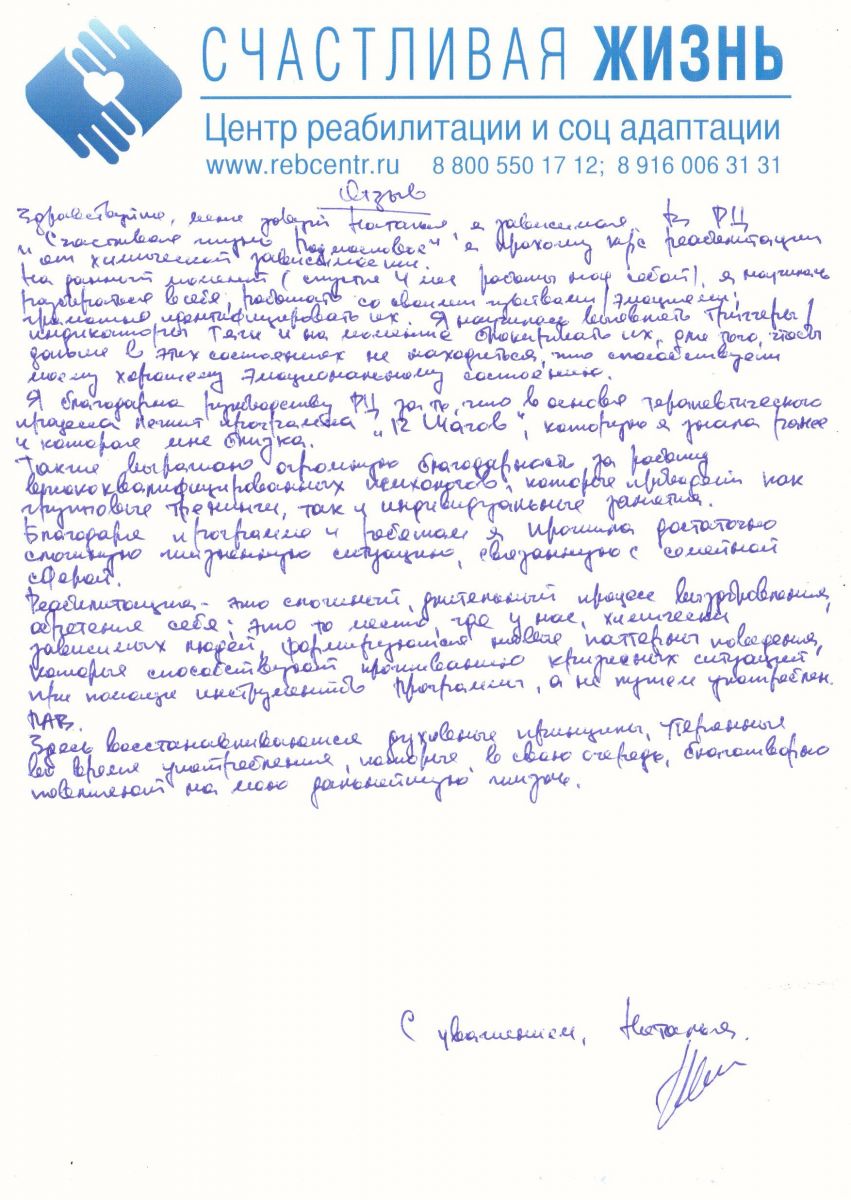 СЧАСТЛИВАЯ ЖИЗНЬ
Центр реабилитации и соц адаптации
www.rebcentr.ru 8 800 550 17 12; 8 916 006 31 31
Отзыв
Здравствуйте, меня зовут Наталья, я зависимая. В РЦ
"Счастливая жизнь Подмосковье" я прохожу курс реабилитации
от химической зависимости.
На данный момент (спустя 4 мес работы над собой), я научилась
разбираться в себе, работать со своими чувствами/эмоциями,
грамотно идентифицировать их. Я научилась выявлять триггеры/
индикаторы тяги и на моменте блокировать их, для того, чтобы
дольше в этих состояниях не находиться, что способствует
моему хорошему эмоциональному состоянию.
Я благодарна руководству РЦ за то, что в основе терапевтического
процесса лежит программа "12 Шагов", которую я знала ранее
и которая мне близка.
Также выражаю огромную благодарность за работу
высококвалифицированных психологов, которые проводят как
групповые тренинги, так и индивидуальные занятия.
Благодаря программе и работам я прожила достаточно
сложную жизненную ситуацию, связанную с семейной
сферой.
Реабилитация - это сложный, длительный процесс выздоровления,
обретения себя; это то место, где у нас, химически
зависимых людей, формируются новые паттерны поведения,
которые способствуют проживанию кризисных ситуаций,
при помощи инструментов Программы, а не путем употреблен.
ПАВ.
Здесь восстанавливаются духовные принципы, утерянные
во время употребления, которые, в свою очередь, благотворно
повлияют на мою дальнейшую жизнь.
С уважением, Наталья.